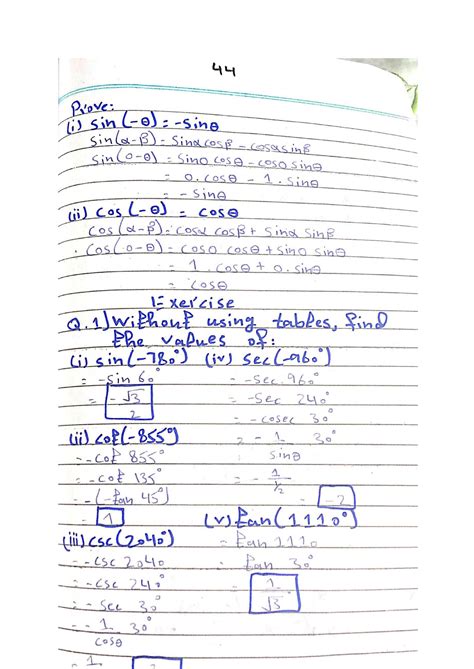 44
Prove:
(i) sin(-θ) = -sinθ
sin(α-β) = sinαcosβ - cosαsinβ
sin(0-θ) = sin0 cosθ - cos0 sinθ
= 0.cosθ - 1.sinθ
= -sinθ
(ii) cos(-θ) = cosθ
cos(α-β) = cosα cosβ + sinα sinβ
cos(0-θ) = cos0 cosθ + sin0 sinθ
= 1.cosθ + 0.sinθ
= cosθ
Exercise
Q.1) Without using tables, find
the values of:
(i) sin(-780°) (iv) sec(-960°)
= -sin 60° = -sec 960°
= -√3/2 = -sec 240°
= -cosec 30°
(ii) cot(-855°) = -1/sinθ 30°
= -cot 855°
= -cot 135° = -1/½
= -(-tan 45°) = -2
= 1 (v) tan(1110°)
(iii) csc(2040°) = tan 1110°
= -csc 2040 = tan 30°
= -csc 240° = 1/√3
= -sec 30°
= -1/cosθ 30°